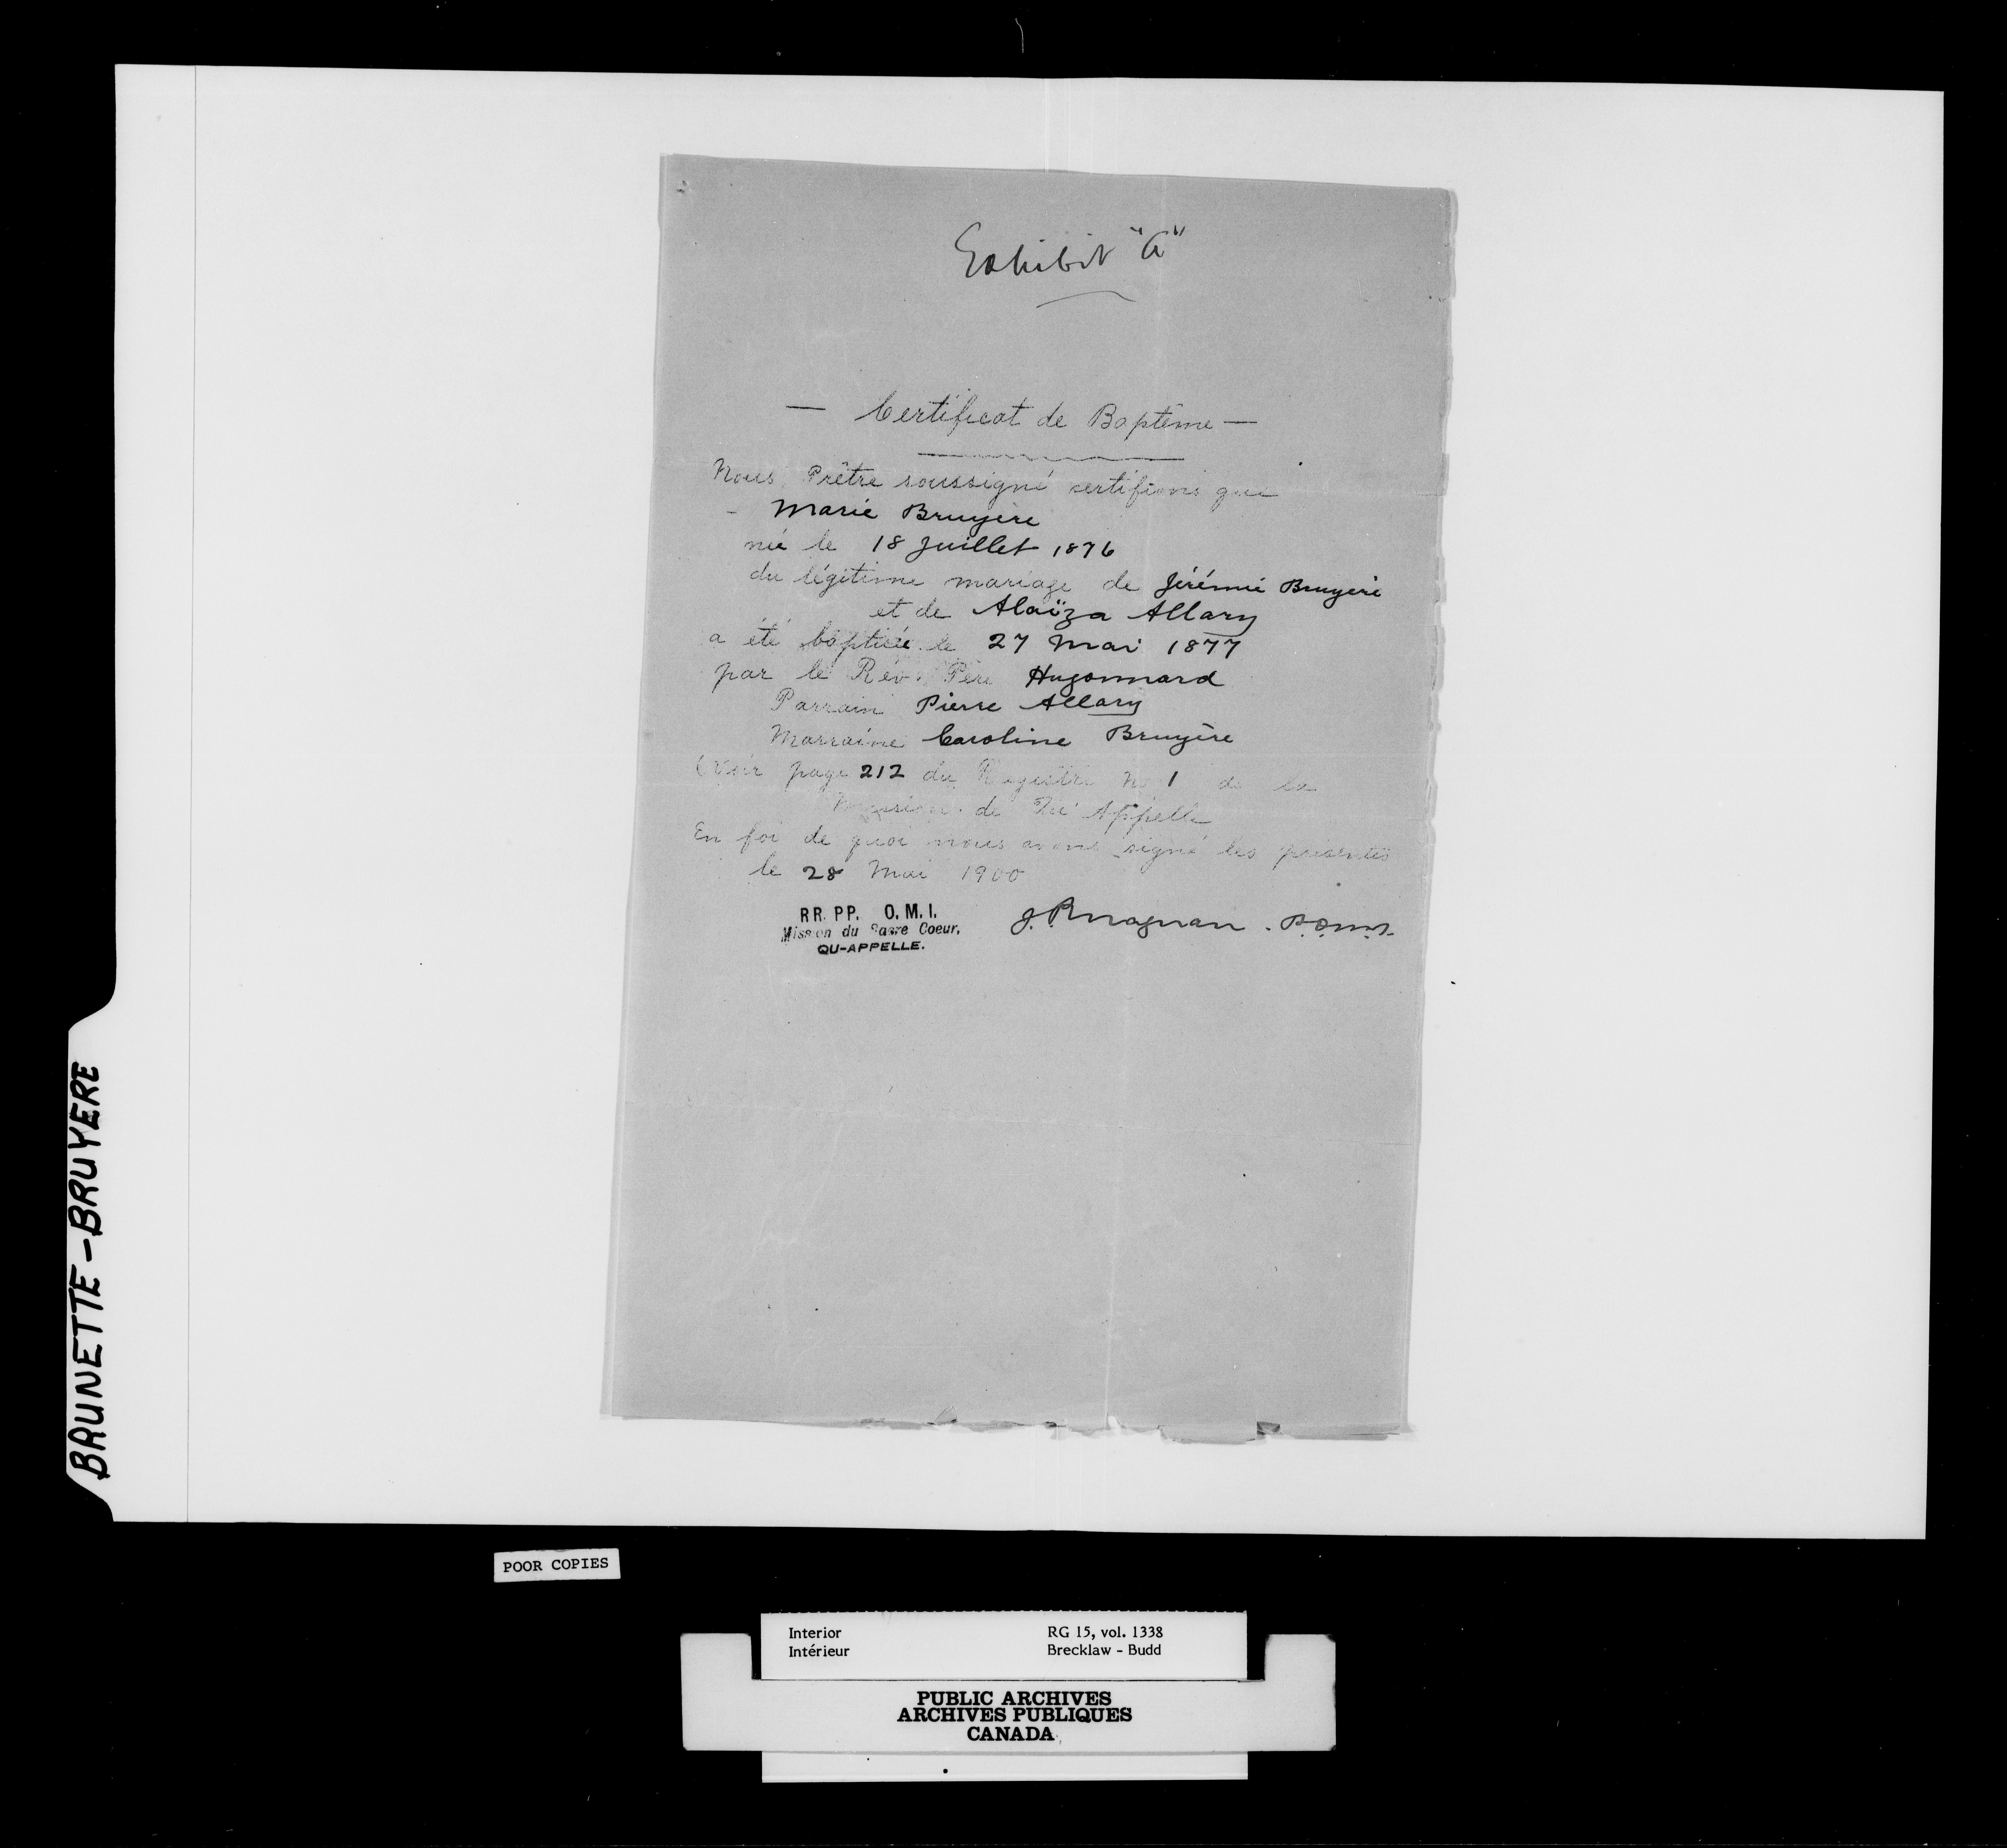 Exhibit "A"
— Certificat de Baptême —
Nous, Prêtre soussigné certifions que
- Marie Bruyère
née le 18 Juillet 1876
du légitime mariage de Jérémie Bruyère
et de Alaïza Allary
a été baptisée le 27 Mai 1877
par le Rév. Père Hugonnard
Parrain Pierre Allary
Marraine Caroline Bruyère
(Voir page 212 du Registre No 1 de la
Mission de Qu'Appelle
En foi de quoi nous avons signé les présentes
le 28 Mai 1900
RR. PP. O. M. I.
Mission du Sacre Coeur,
QU-APPELLE.
J. P. Magnan. P.O.M.I.
BRUNETTE-BRUYERE
POOR COPIES
Interior RG 15, vol. 1338
Intérieur Brecklaw - Budd
PUBLIC ARCHIVES
ARCHIVES PUBLIQUES
CANADA